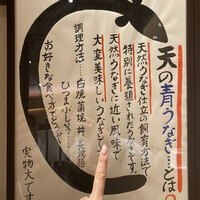 天の青うなぎ…とは?
天然うなぎ仕立の飼育方法で
特別に養殖されたうなぎです。
天然うなぎに近い風味で
大変美味しいうなぎです
調理方法……白焼 蒲焼 丼
ひつまぶし
お好きな食べ方でどうぞ
実物大です